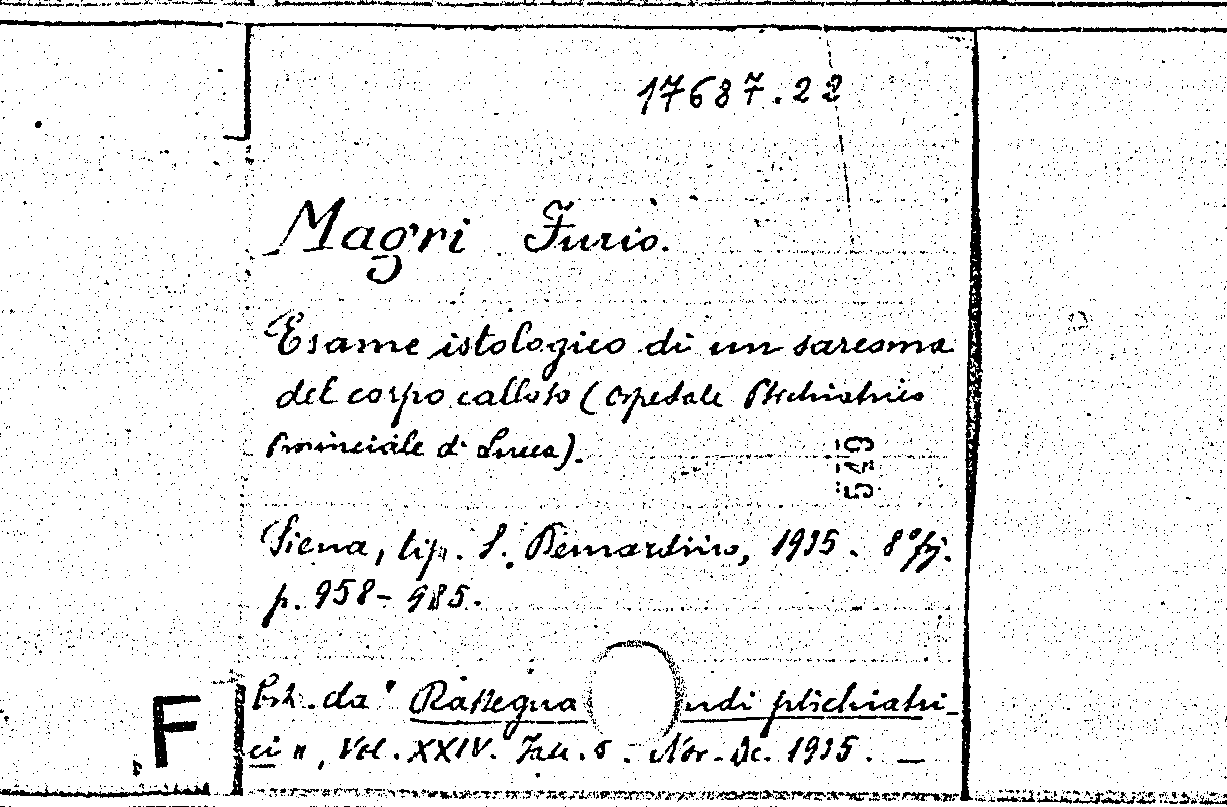 17687.22
Magri Furio.
Esame istologico di un sarcoma
del corpo calloso (Ospedale Psichiatrico
Provinciale di Lucca).
549
Siena, tip. S. Bernardino, 1935. 8° fig.
p. 958-985.
Estr. da "Rassegna udi psichiatri-
ci", Vol. XXIV. Fasc. 6. Nov.-Dc. 1935. —
F